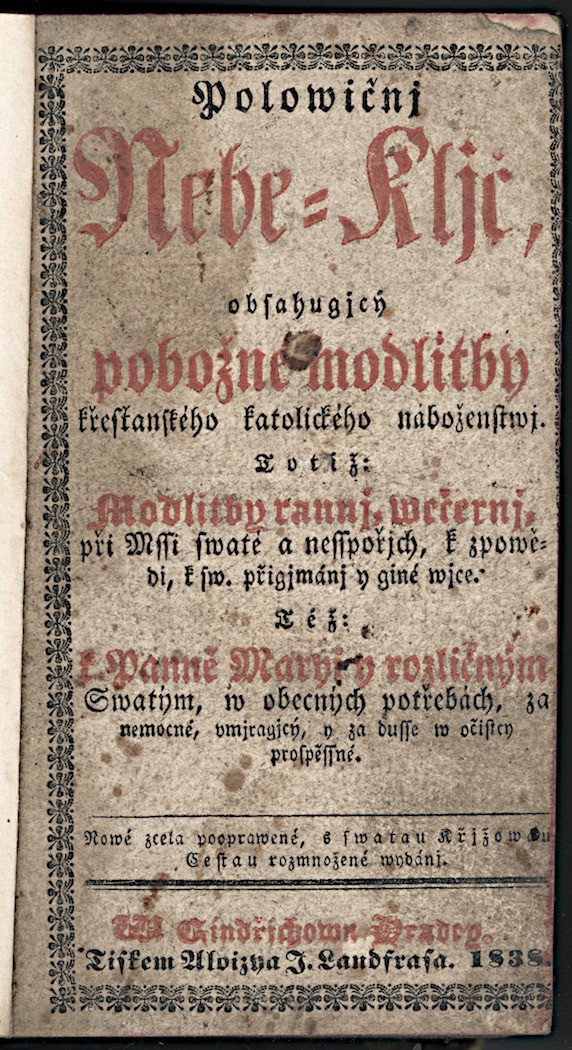 Polowičnj
Nebe-Kljč,
obsahugjcý
pobožné modlitby
křesťanského katolického náboženstwj.
Totiž:
Modlitby rannj, wečernj,
při Mssi swaté a nessporjch, k zpowě-
di, k sw. přigjmánj y giné wjce.
Též:
k Panně Maryi y rozličným
Swatým, w obecných potřebách, za
nemocné, vmjragjcý, y za dusse w očistcy
prospěssné.
Nowé zcela pooprawené, s swatau Křjžowau
Cestau rozmnožené wydánj.
W Gindřichowu Hradcy.
Tiskem Aloizya J. Landfrasa. 1838.